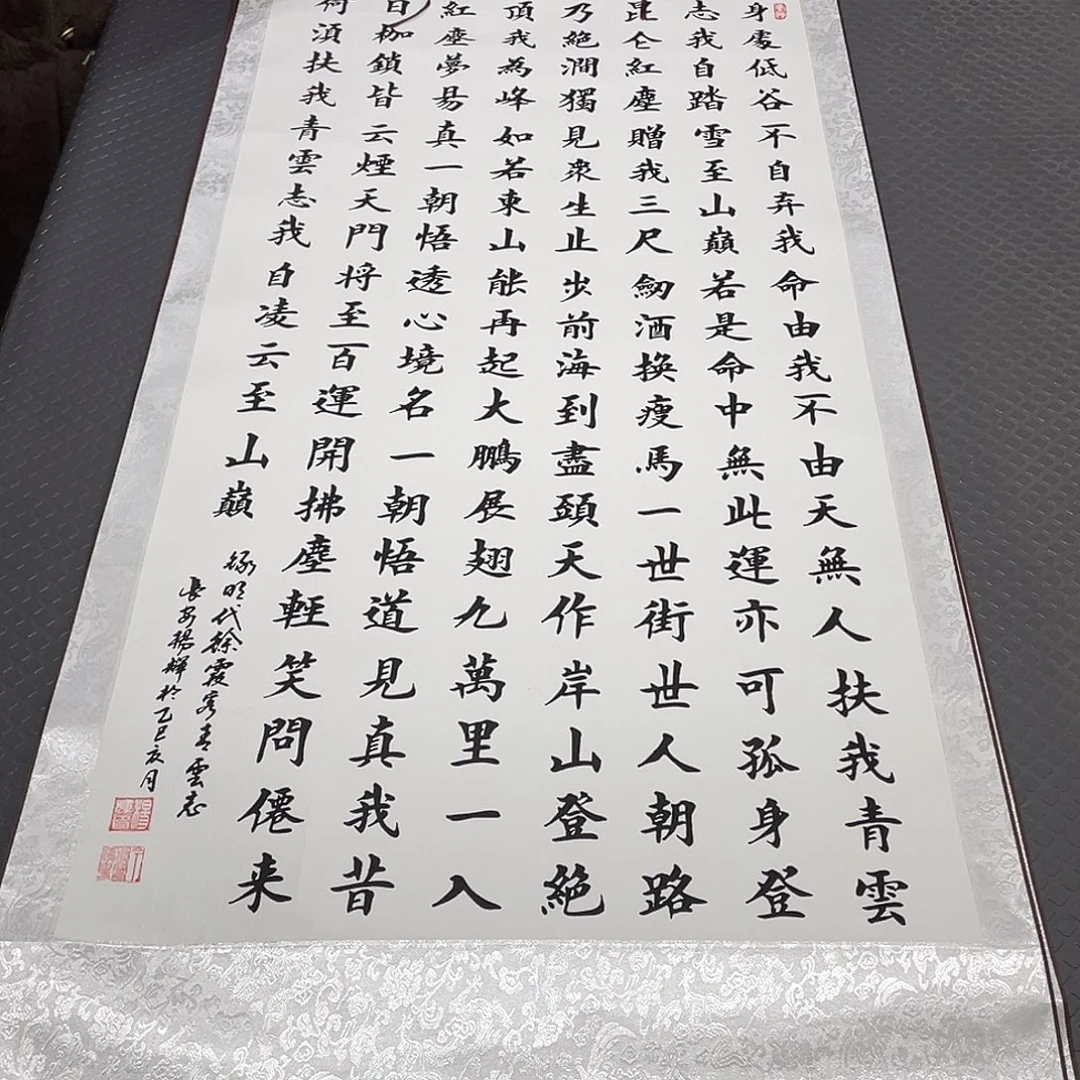 身處低谷不自弃我命由我不由天無人扶我青雲
志我自踏雪至山巔若是命中無此運亦可孤身登
昆仑紅塵贈我三尺劒酒换瘦馬一世街世人朝路
乃絕澗獨見衆生止步前海到盡頭天作岸山登絕
頂我為峰如若東山能再起大鵬展翅九萬里一入
紅塵夢易真一朝悟透心境名一朝悟道見真我昔
日枷鎖皆云煙天門将至百運開拂塵輕笑問僊来
何須扶我青雲志我自凌云至山巔
録明代徐霞客青雲志
長安楊輝於乙巳月